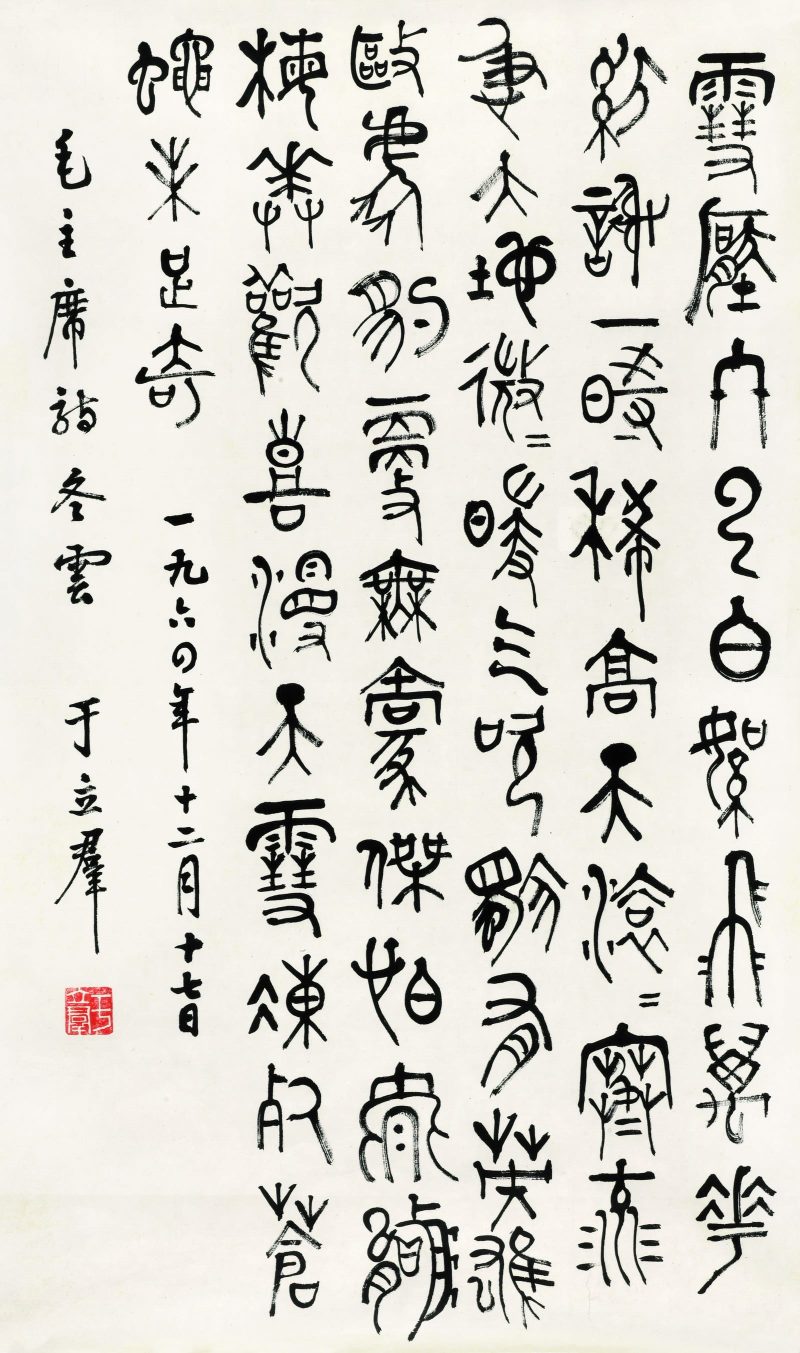 雪壓冬雲白絮飛萬花
紛謝一時稀高天滾〻寒流
急大地微〻暖气吹獨有英雄
敺虎豹更無豪傑怕熊羆
梅華歡喜漫天雪凍死蒼
蠅未足奇 一九六四年十二月十七日
毛主席詩冬雲 于立羣